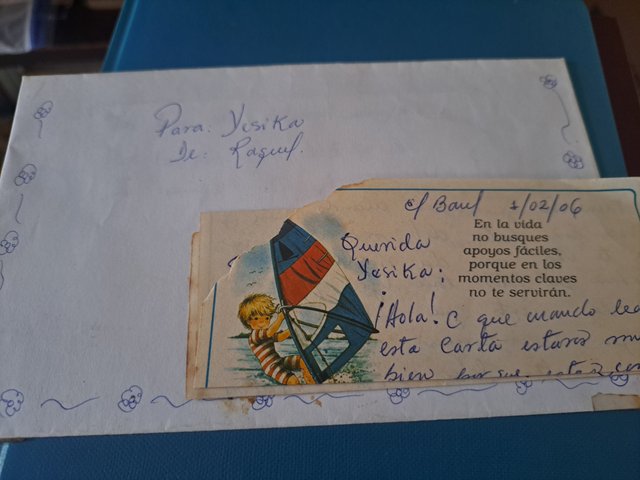 Para: Yesika
De: Raquel.
c/ Baul 1/02/06
En la vida
no busques
apoyos fáciles,
porque en los
momentos claves
no te servirán.
Querida
Yesika:
¡Hola! C que cuando lea
esta Carta estaras mu
bien